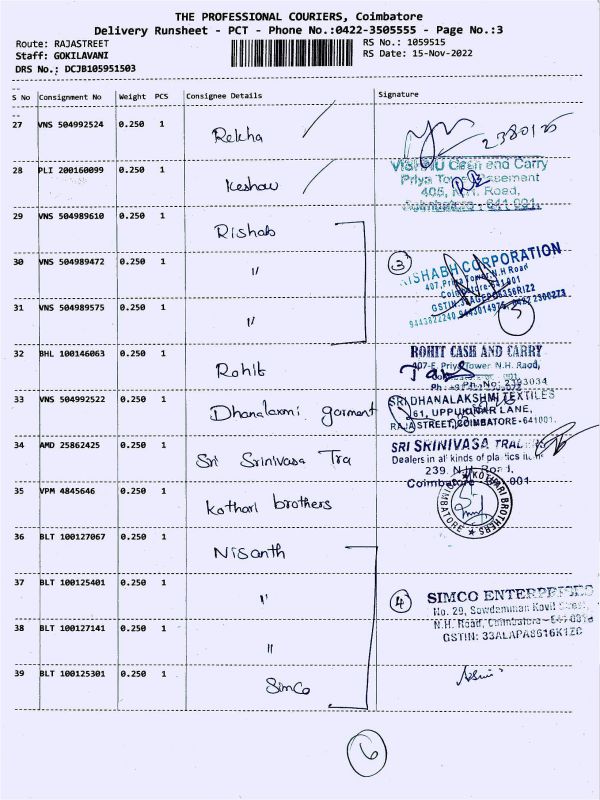 THE PROFESSIONAL COURIERS, Coimbatore
Delivery Runsheet - PCT - Phone No.:0422-3505555 - Page No.:3
Route: RAJASTREET
RS No.: 1059515
Staff: GOKILAVANI
RS Date: 15-Nov-2022
DRS No.: DCJB105951503
S No Consignment No Weight PCS Consignee Details Signature
27 VNS 504992524 0.250 1 Rekha
28 PLI 200160099 0.250 1 Keshav
Cash and Carry
Priya Tower Basement
405, N.H. Road,
Coimbatore - 641 001.
29 VNS 504989610 0.250 1 Rishab
30 VNS 504989472 0.250 1 "
3
RISHABH CORPORATION
407, Priya Tower, N.H Road
Coimbatore-641 001
31 VNS 504989575 0.250 1 "
32 BHL 100146063 0.250 1 Rohit
ROHIT CASH AND CARRY
407-E, Priya Tower N.H. Road,
33 VNS 504992522 0.250 1 Dhanalaxmi garment
SRI DHANALAKSHMI TEXTILES
61, UPPUKINAR LANE,
RAJASTREET, COIMBATORE-641001.
34 AMD 25862425 0.250 1 Sri Srinivasa Tra
SRI SRINIVASA
Dealers in all kinds of plastics
239, N.H. Road,
Coimbatore 001
35 VPM 4845646 0.250 1 Kothari brothers
KOTHARI BROTHERS
COIMBATORE
36 BLT 100127067 0.250 1 Nisanth
37 BLT 100125401 0.250 1 "
4
SIMCO ENTERPRISES
No. 29, Sowdamman Kovil Street,
N.H. Road, Coimbatore
GSTIN: 33ALAPA8616K1ZC
38 BLT 100127141 0.250 1 "
39 BLT 100125301 0.250 1 Simco
6